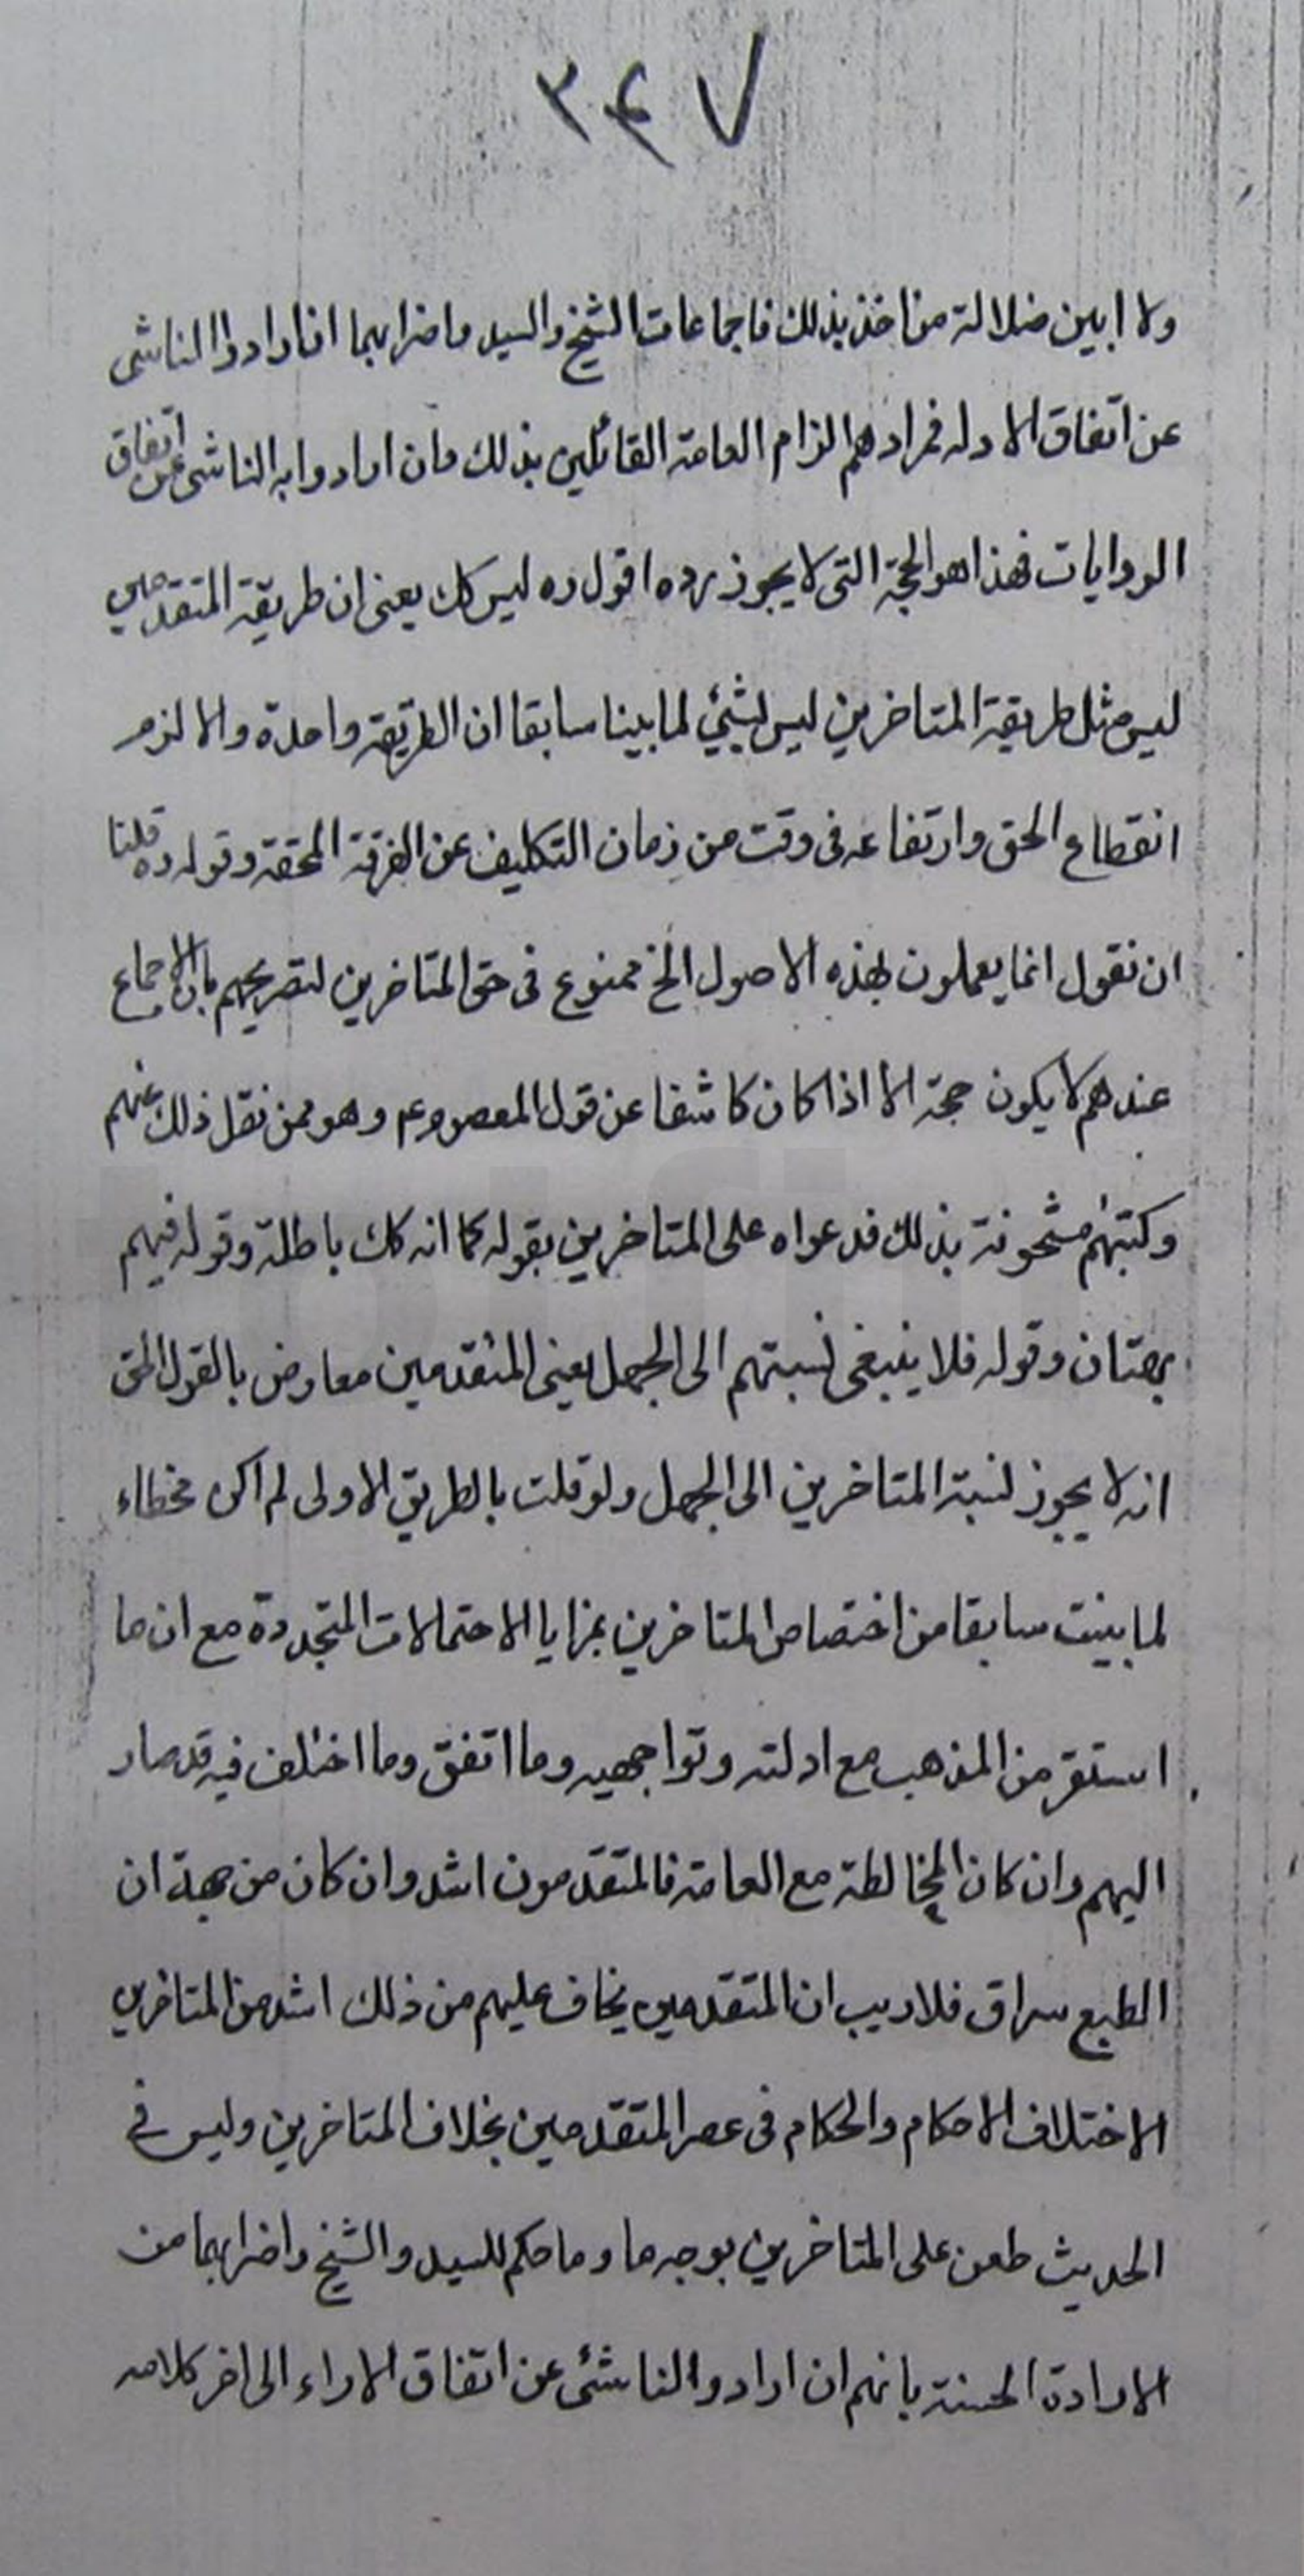 ٣۴٧
ولا ابين ضلالة من اخذ بذلك فاجماعات الشيخ والسيد واضرابهما ان ارادوا الناشى
عن اتفاق الادله فمرادهم الزام العامة القائلين بذلك وان ارادوا به الناشى عن اتفاق
الروايات فهذا هو الحجة التى لا يجوز رده اقول ره ليس كك يعنى ان طريقة المتقدمين
ليس مثل طريقة المتاخرين ليس بشئ لما بينا سابقا ان الطريقة واحدة والا لزم
انقطاع الحق وارتفاعه فى وقت من زمان التكليف عن الفرقة المحقة وقوله ره قلنا
ان نقول انما يعملون بهذه الاصول الخ ممنوع فى حق المتاخرين لتصريحهم بان الاجماع
عندهم لا يكون حجة الا اذا كان كاشفا عن قول المعصوم ع وهو ممن نقل ذلك عنهم
وكتبهم مشحونة بذلك فدعواه على المتاخرين بقوله كما انه كك باطلة وقوله فيهم
بهتان وقوله فلا ينبغى نسبتهم الى الجهل يعنى المتقدمين معارض بالقول الحق
انه لا يجوز نسبة المتاخرين الى الجهل ولو قلت بالطريق الاولى لم اكن مخطاء
لما بينت سابقا من اختصاص المتاخرين بمزايا الاحتمالات المتجددة مع ان ما
استقر من المذهب مع ادلته وتواجهيه وما اتفق وما اختلف فيه قد صار
اليهم وان كان المخالطة مع العامة فالمتقدمون اشد وان كان من جهة ان
الطبع سراق فلا ريب ان المتقدمين يخاف عليهم من ذلك اشد من المتاخرين
لاختلاف الاحكام والحكام فى عصر المتقدمين بخلاف المتاخرين وليس فى
الحديث طعن على المتاخرين بوجه ما وما حكم للسيد والشيخ واضرابهما من
الارادة الحسنة بانهم ان ارادوا الناشئ عن اتفاق الاراء الى اخر كلامه